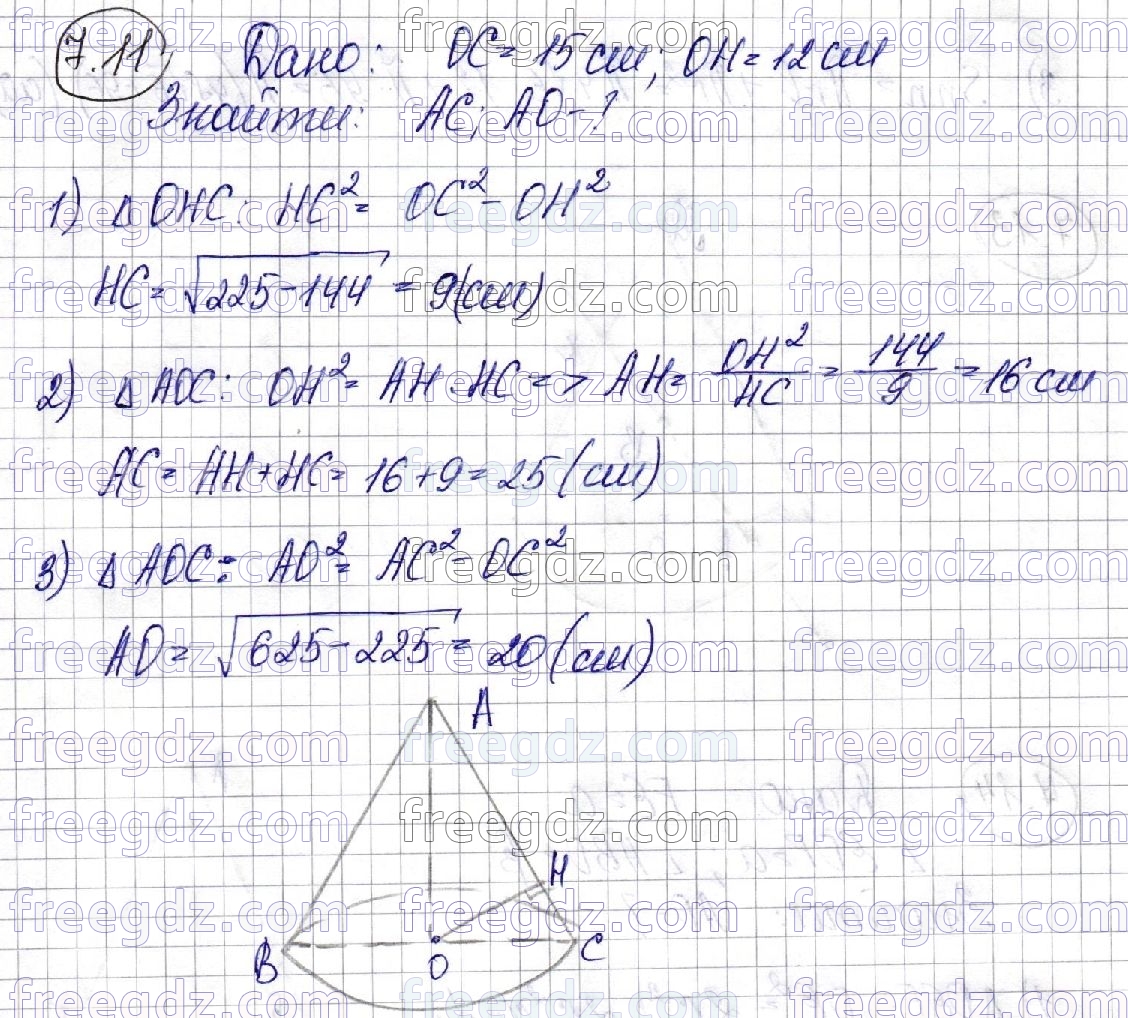 7.11, Дано: OC = 15 см; OH = 12 см
Знайти: AC; AO - ?
1) △ OHC: HC² = OC² - OH²
HC = √225 - 144 = 9(см)
2) △ AOC: OH² = AH · HC => AH = OH²/HC = 144/9 = 16 см
AC = AH + HC = 16 + 9 = 25 (см)
3) △ AOC: AO² = AC² - OC²
AO = √625 - 225 = 20 (см)
A
H
B
O
C
freegdz.com